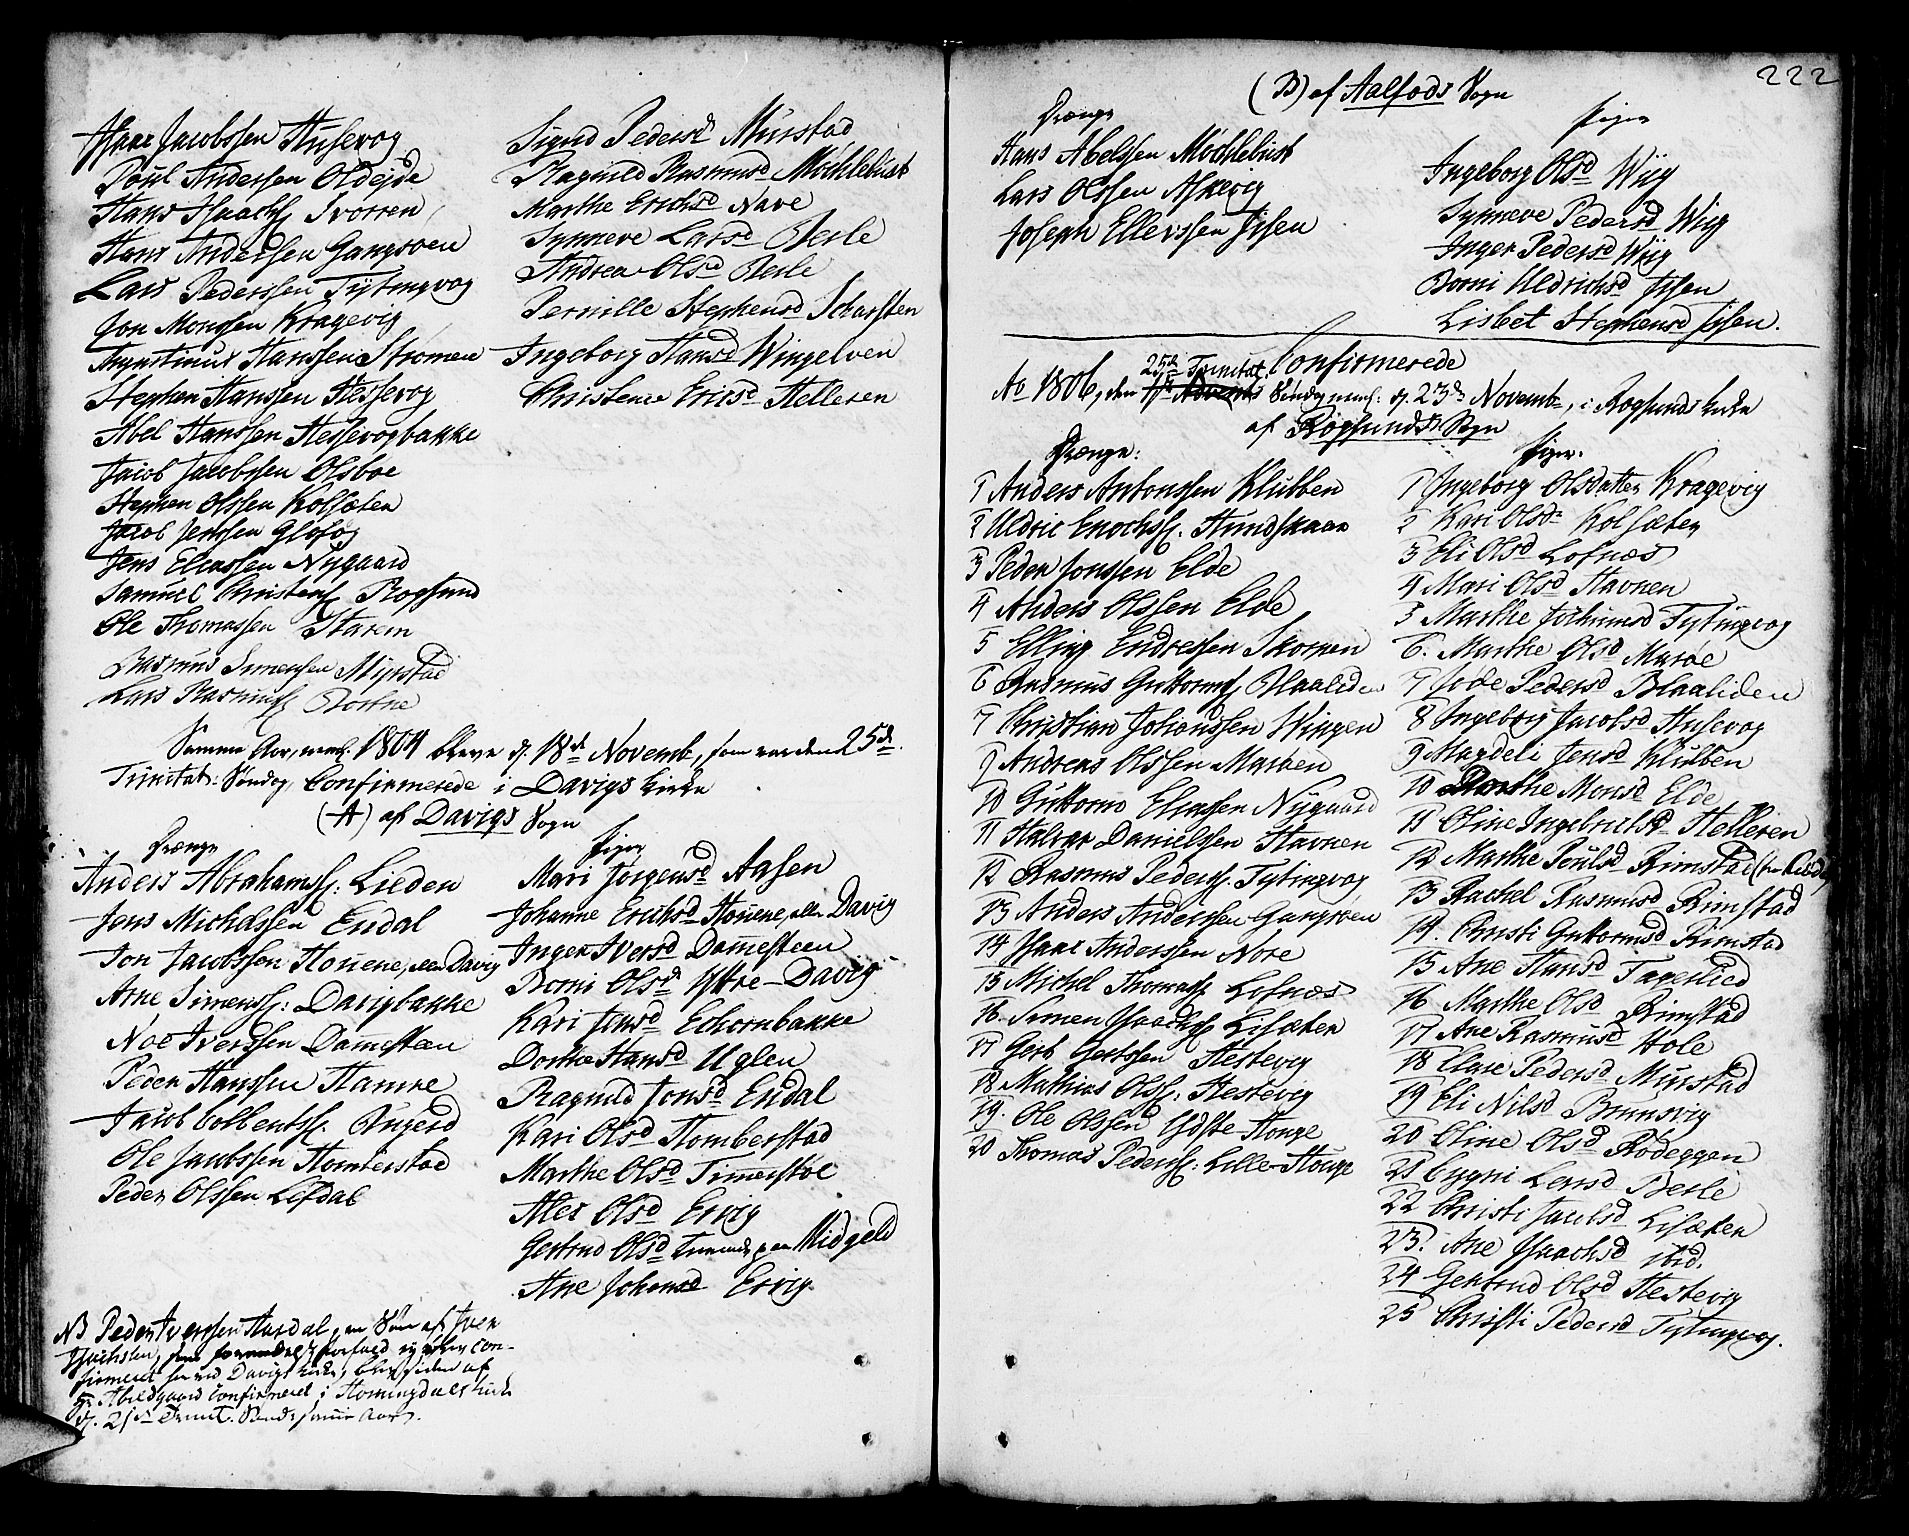 Isaac Jacobssen Husevog
Poul Anderssen Oldejde
Hans Isaachs. Ivorren
Hans Anderssen Gangsøen
Lars Pederssen Tytingvog
Jon Monssen Kragevig
Augustinus Hanssen Skomen
Stephen Hanssen Hessevog
Abel Hanssen Hessevogbakke
Jacob Jacobssen Olsboe
Stephen Olssen Kolsæter
Jacob Jenssen
Jens Eliassen Nygaard
Samuel Christens. Rogsund
Ole Thomassen Starem
Rasmus Simenssen Myrstad
Lars Rasmuss.
Sigrid Pedersd Murstad
Ragnild Rasmusd Möchlebust
Marthe Erichsd Nave
Synneve Larsd Berle
Andrea Olsd Berle
Pernille Stephensd Scharsten
Ingeborg Hansd Wingelven
Christence Ericsd Helleren
Samme Aar, neml. 1804 bleve d. 18de Novemb., som var den 25de
Trinitat: Søndag, Confirmerede i Davigs Kirke
(A) af Davigs Sogn
Drænge
Anders Abrahamss: Lieden
Jens Michelssen Endal
Jon Jacobssen Houene, eller Davig
Arne Simenss: Davigbakke
Noe Iverssen Damesteen
Peder Hanssen Hamre
Jacob Colbentss. Rugerd
Ole Jacobssen Homberstad
Peder Olssen Lefdal
Piger
Mari Jørgensd Aasen
Johanne Erichsd Houene, eller Davig
Inger Iversd Damesteen
Borni Olsd Yttre-Davig
Kari Jonsd Echornbakke
Dorthe Hansd Uglen
Ragnild Jonsd Endal
Kari Olsd Homberstad
Marthe Olsd Timmerstøl
Ales Olsd Ervig
Gertrud Olsd paa Midgeld
Ane Johansd Ervig
NB Peder Iverssen Aardal, en Søn af Iver
Isachsen, som formedelst forfald ey blev con-
firmeret her ved Davigs Kirke, blev siden af
Hr Abildgaard confirmeret i Horningdals Kirke
d. 21de Trinit. Sønd. samme Aar.
222
(B) af Aalfods Sogn
Drænge
Hans Abelssen Möchlebust
Lars Olssen Askevig
Joseph Ellevssen Isen
Piger
Ingeborg Olsd Wiig
Synneve Pedersd Wiig
Inger Pedersd Wiig
Borni Uldrichsd Isen
Lisbet Stephensd Isen.
Confirmerede
25de Trinitat.
Ao 1806, den 1ste Advents Søndag neml: d. 23de Novemb., i Rogsunds Kirke
af Rogsunds Sogn
Drænge:
1 Anders Antonssen Klubben
2 Uldric Enochss. Hundskaar
3 Peder Jonssen Elde
4 Anders Olssen Elde
5 Elling Endressen Skomen
6 Rasmus Guttorms. Blaaliden
7 Christian Johanssen Wingen
9 Andreas Olssen Maroen
10 Guttorm Eliassen Nygaard
11 Halvor Danielssen Havnen
12 Rasmus Pederss. Tytingvog
13 Anders Anderssen Gangsøen
14 Isaac Anderssen Nore
15 Michel Thomass. Lofnæs
16. Simen Isaachs. Lisæter
17 Gert Gertssen Hestevig
18 Mathias Olss: Hestevig
19. Ole Olssen Ydste-Houge
20 Thomas Pederss: Lille-Houge
Piger.
1 Ingeborg Olsdatter Kragevig
2 Kari Olsdr Kolsæter
3 Eli Olsd Lofnæs
4 Mari Olsd Havnen
5 Marthe Jochumsd Tytingvog
6. Marthe Olsd Maroe
7 Jode Pedersd Blaaliden
8 Ingeborg Jacobsd Husevog
9 Magdeli Jensd Klubben
10 Marthe Monsd Elde
11 Oline Ingebrichtsd Helleren
12 Marthe Poulsd Rimstad
13 Rachel Rasmusd Rimstad
14 Christi Guttormsd Rimstad
15 Ane Hansd Tageslied
16 Marthe Olsd Rimstad
17 Ane Rasmusd Hole
18 Clare Pedersd Murstad
19 Eli Nilsd Brunsvig
20 Oline Olsd Rodeggen
21 Cygni Larsd Berle
22 Christi Jacobsd Lisæter
23. Ane Isaachsd ibid.
24 Gertrud Olsd Hestevig
25 Christi Pedersd Tytingvog.